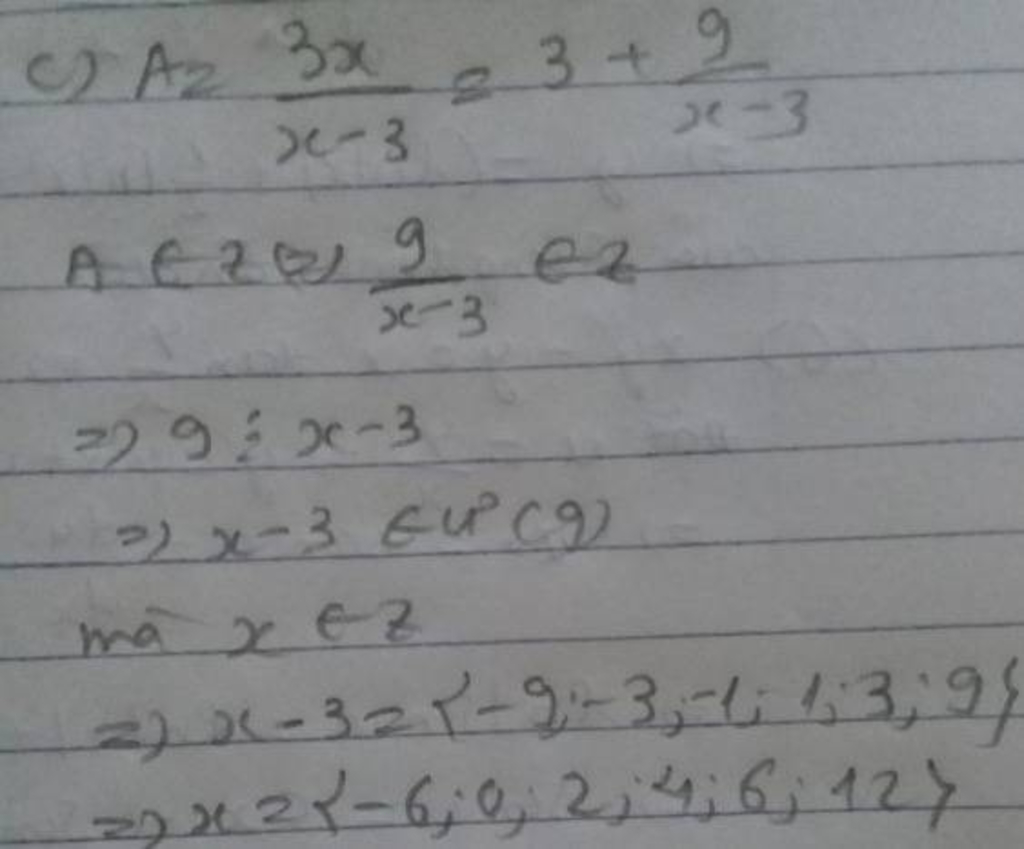 c) A = 3x / x-3 = 3 + 9 / x-3
A ∈ Z <=> 9 / x-3 ∈ Z
=> 9 ⋮ x-3
=> x-3 ∈ Ư(9)
mà x ∈ Z
=> x-3 = {-9; -3; -1; 1; 3; 9}
=> x = {-6; 0; 2; 4; 6; 12}